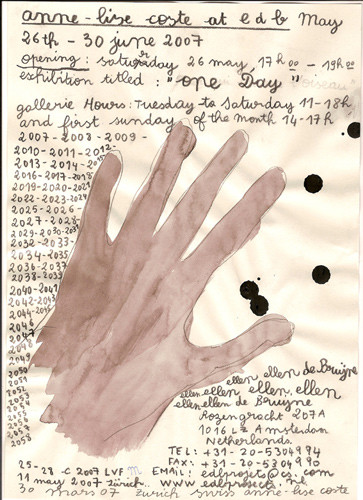 anne-lise coste at e d b May
26th - 30 june 2007
opening: saturday 26 may, 17h00 - 19h00
exhibition titled: "one Day"
gallerie Hours: Tuesday to Saturday 11-18h,
and first sunday of the month 14-17h
2007-2008-2009-
2010-2011-2012-
2013-2014-2015-
2016-2017-2018
2019-2020-2021
2022-2023-2024
2025-2026-
2027-2028-
2029-2030-2031
2032-2033-
2034-2035-
2036-2037-
2038-2039-
2040-2041-
2042-2043
2044-2045
2046
2047
2048
2049
2050
2051
2052
2053
ellen ellen de Bruijne
ellen ellen ellen. ellen
ellen ellen de Bruyne
Rozengracht 207A
1016 LZ Amsterdam
Netherlands.
TEL: +31-20-5304994
FAX: +31-20-5304990
EMAIL: edbprojets@cs.com
www.edbprojects.nl
25-28-C 2007 LVF M
11 may 2007 zürich..
30 mars 07 zurich swis anne lise coste